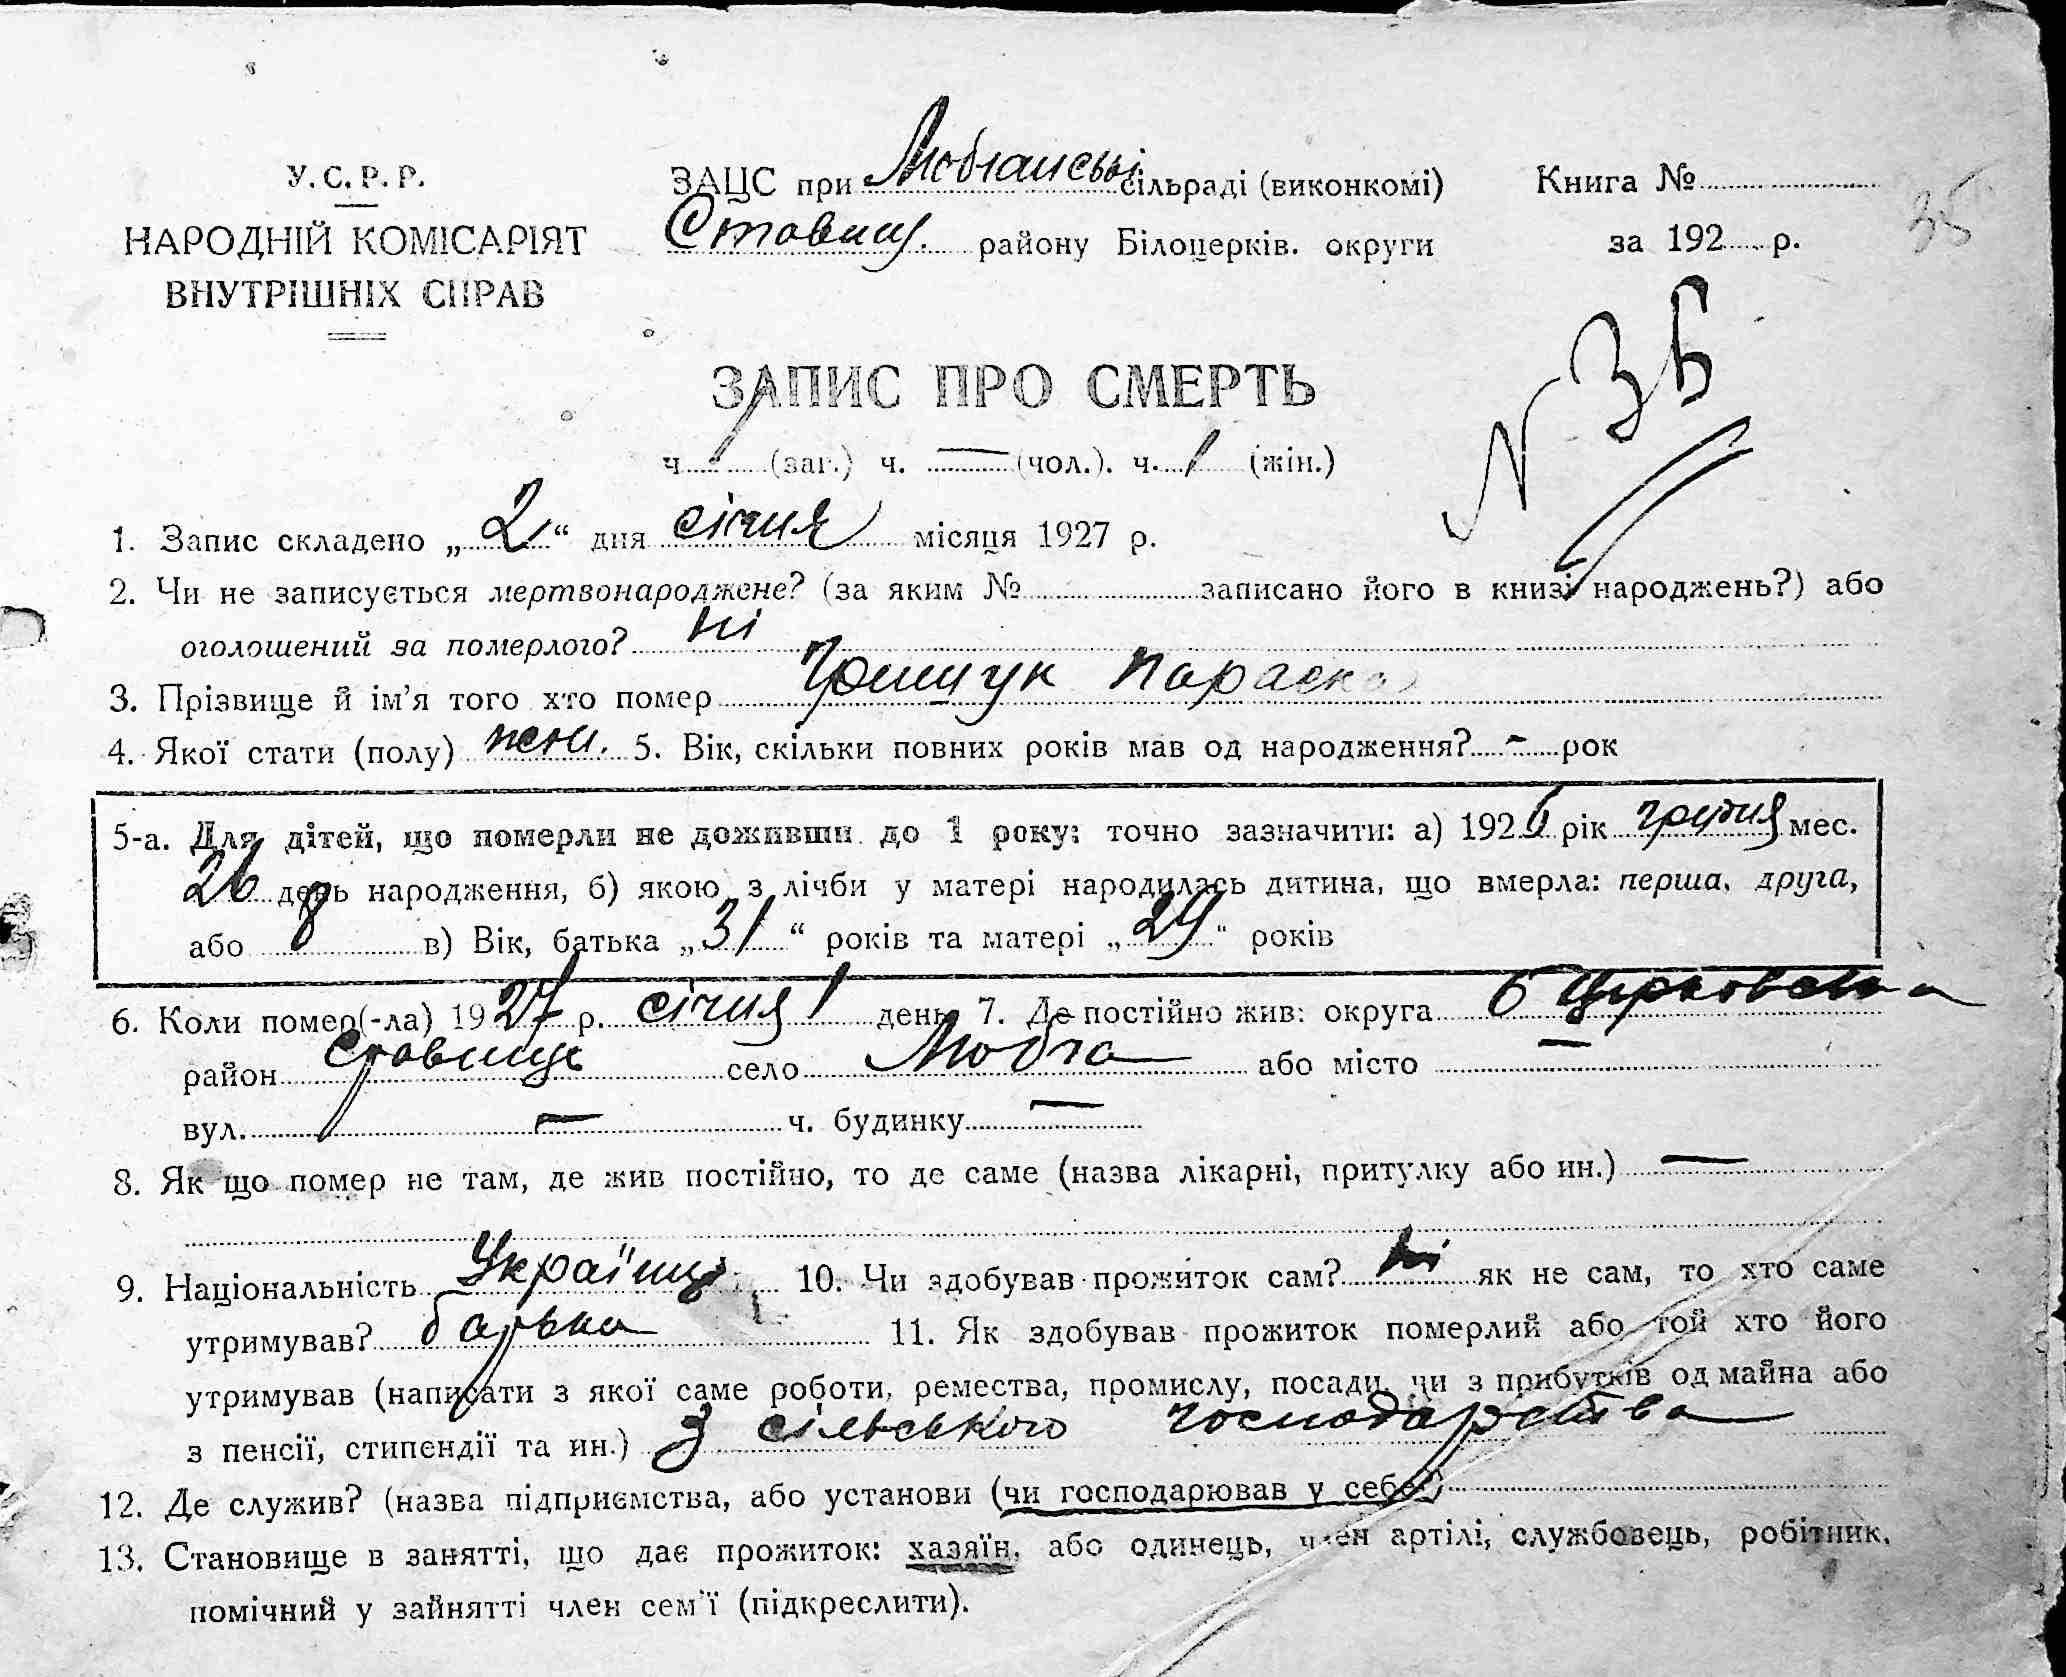 У.С.Р.Р.
НАРОДНІЙ КОМІСАРІЯТ
ВНУТРІШНІХ СПРАВ
ЗАЦС при Любчанські сільраді (виконкомі)
Ставищ. району Білоцерків. округи
Книга №
за 192 р.
35
№ 3Б
ЗАПИС ПРО СМЕРТЬ
ч. 1 (заг.) ч. — (чол.). ч. 1 (жін.)
1. Запис складено „ 2 “ дня січня місяця 1927 р.
2. Чи не записується мертвонароджене? (за яким № записано його в книзі народжень?) або
оголошений за померлого? ні
3. Прізвище й ім’я того хто помер Грищук Параска
4. Якої стати (полу) жен. 5. Вік, скільки повних років мав од народження? - рок
5-а. Для дітей, що померли не доживши до 1 року: точно зазначити: а) 1926 рік грудня мес.
26 день народження, б) якою з лічби у матері народилась дитина, що вмерла: перша, друга,
або 8 в) Вік, батька „ 31 “ років та матері „ 29 “ років
6. Коли помер(-ла) 1927 р. січня 1 день 7. Де постійно жив: округа Б Церковська
район Ставищь село Любча або місто —
вул. — ч. будинку —
8. Як що помер не там, де жив постійно, то де саме (назва лікарні, притулку або ин.) —
9. Національність Україн. 10. Чи здобував прожиток сам? ні як не сам, то хто саме
утримував? батько 11. Як здобував прожиток померлий або той хто його
утримував (написати з якої саме роботи, ремества, промислу, посади, чи з прибутків од майна або
з пенсії, стипендії та ин.) З сільського господарства
12. Де служив? (назва підприємства, або установи (чи господарював у себе)
13. Становище в занятті, що дає прожиток: хазяїн, або одинець, член артілі, службовець, робітник,
помічний у зайнятті член сем’ї (підкреслити).